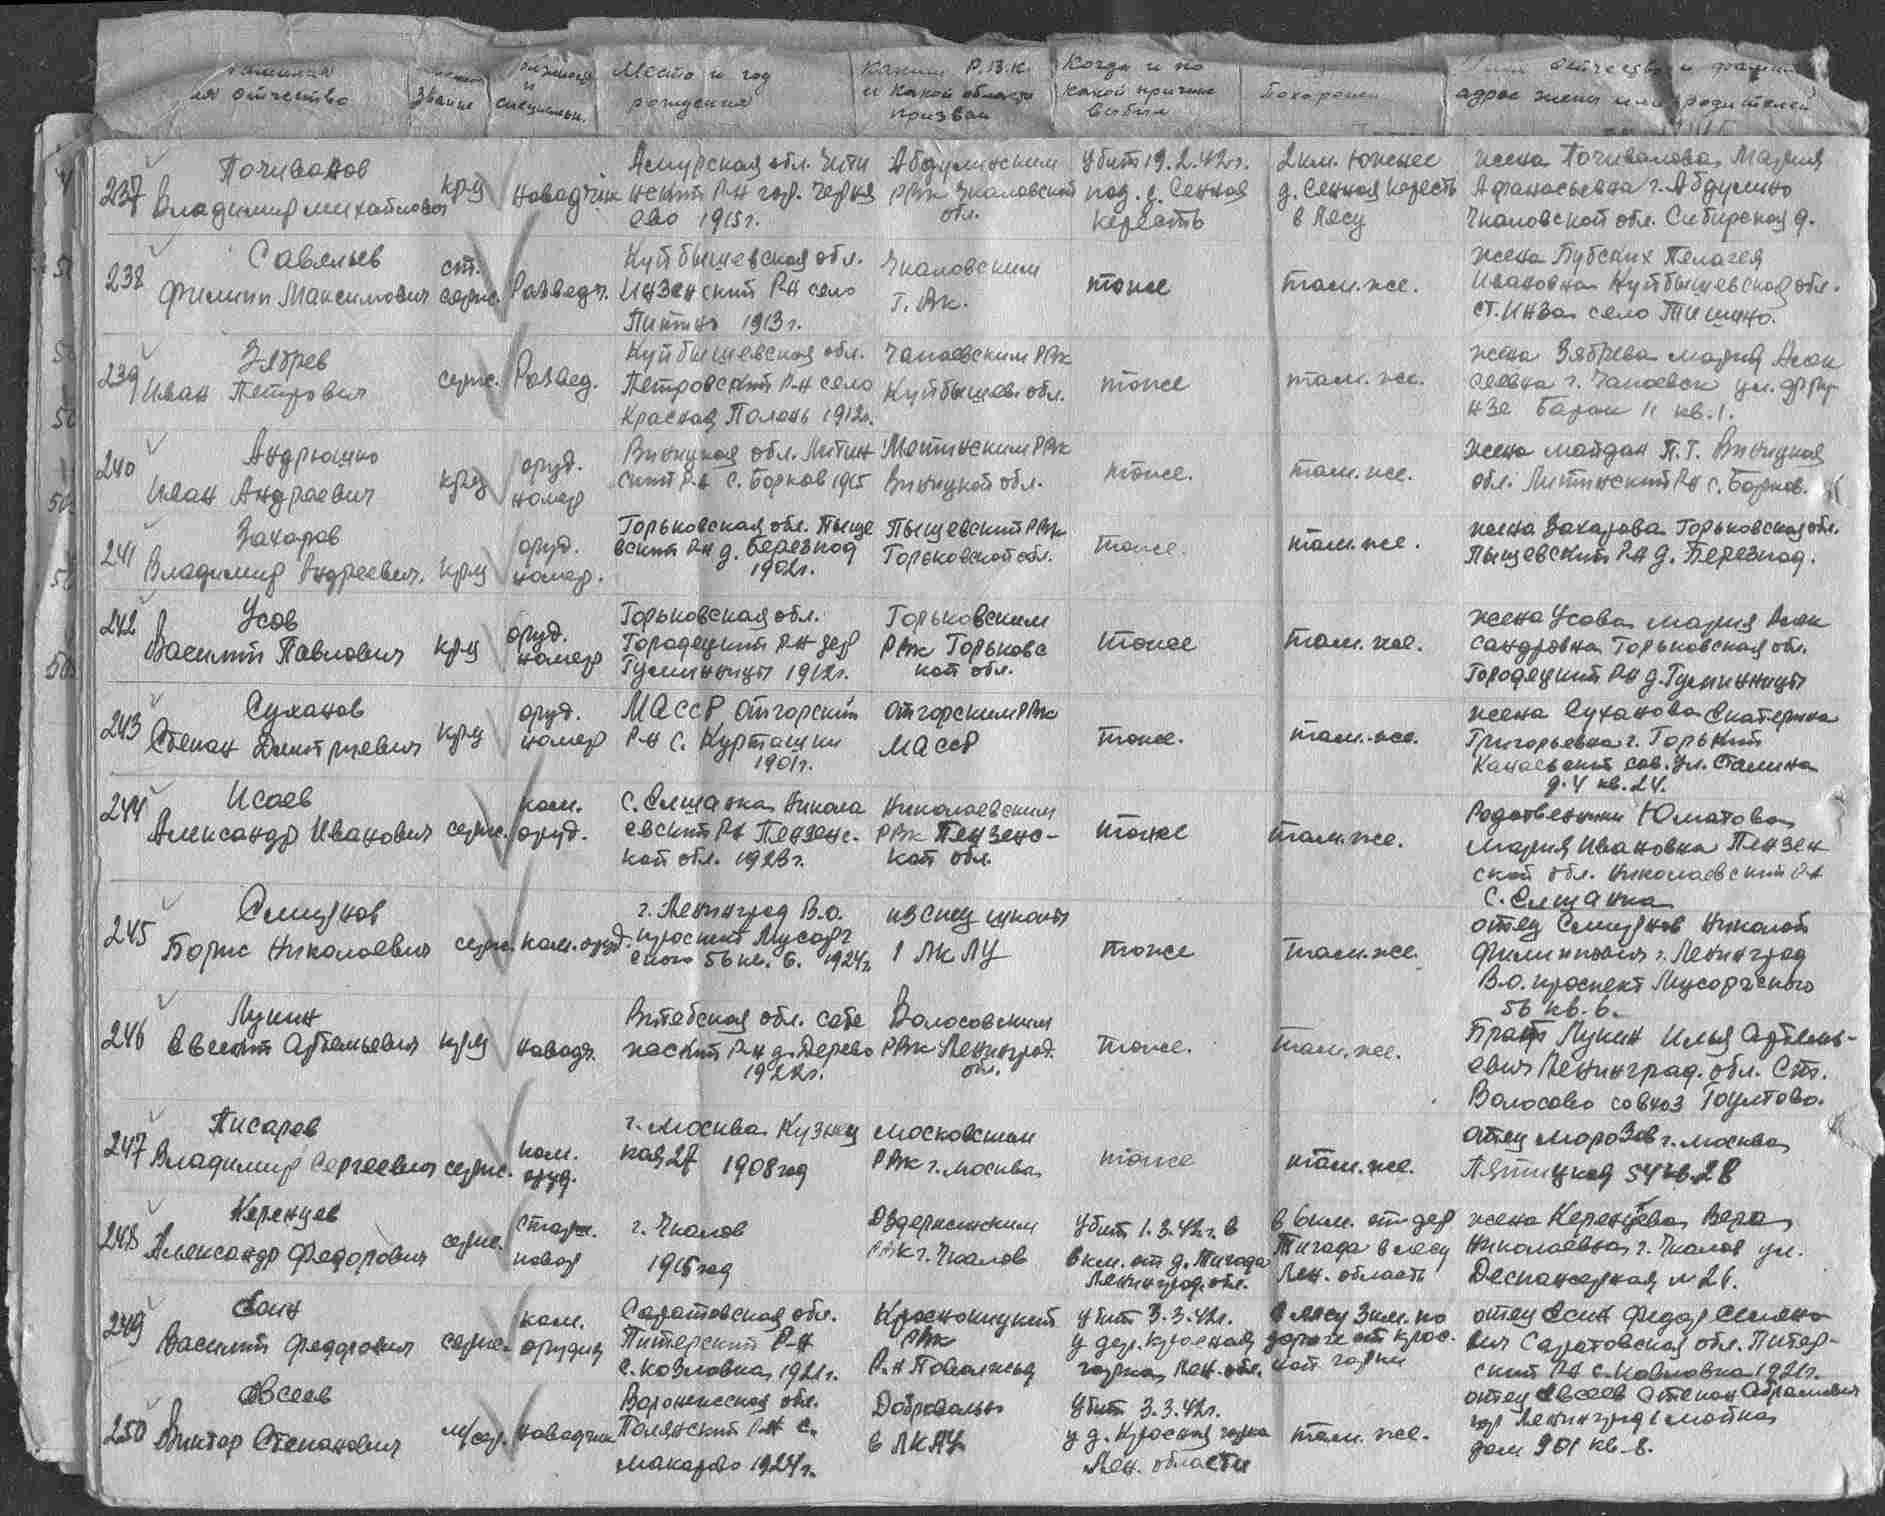 фамилия
имя отчество
звание
и
специальн.
Место и год
рождения
каким Р.В.К.
и какой области
призван
Когда и по
какой причине
выбыл
Похоронен
отчество и фамил
адрес жены или родителей
237 Почивалов
Владимир Михайлович
кр-ц
наводчик
Амурская обл. Чити
нский Р-н гор.
1915г.
Абдулинским
РВК Чкаловской
обл.
Убит 19.2.42г.
под д. Сенная
Кересть
2км. южнее
д. Сенная Кересть
в лесу
жена Почивалова Мария
Афанасьевна г. Абдулино
Чкаловской обл. Сибирская д.
238 Савельев
Филипп Максимович
ст.
серж.
Разведч.
Куйбышевская обл.
Инзенский Р-н село
1913г.
Чкаловским
Г.Вк.
тоже
там.же.
жена Бубских Пелагея
Ивановна Куйбышевская обл.
ст. Инза село Тишино.
239 Зябрев
Иван Петрович
серж.
Развед.
Куйбышевская обл.
Петровский Р-н село
Красная Поляна 1912г.
Чапаевским РВК
Куйбышев. обл.
тоже
там.же.
жена Зябрева Мария Алек
сеевна г. Чапаевск ул. Фру
нзе барак 11 кв.1.
240 Андрюшко
Иван Андреевич
кр-ц
оруд.
номер
Виницкая обл. Литин
ский Р-н с. Борков 1915
Литинским РВК
Виницкой обл.
тоже.
там.же.
жена Майдан П.Т. Виницкая
обл. Литинский Р-н с. Борков.
241 Захаров
Владимир Андреевич.
кр-ц
оруд.
номер.
Горьковская обл. Пыще
вский Р-н д. Березнод
1902г.
Пыщевский РВК
Горьковской обл.
тоже.
там.же.
жена Захарова Горьковская обл.
Пыщевский Р-н д. Березнод.
242 Усов
Василий Павлович
кр-ц
оруд.
номер
Горьковская обл.
Городецкий Р-н дер
Гуминницы 1912г.
Горьковским
РВК Горьковс
кой обл.
тоже
там.же.
жена Усова Мария Алек
сандровна Горьковская обл.
Городецкий Р-н д. Гуминницы
243 Суханов
Степан Дмитриевич
кр-ц
оруд.
номер
МАССР Отгорский
Р-н с. Курташки
1901г.
Отгорским РВК
МАССР
тоже.
там.же.
жена Суханова Екатерина
Григорьевна г. Горький
Канавский сов. ул. Сталина
д.4 кв.24.
244 Исаев
Александр Иванович
серж.
ком.
оруд.
с. Елшанка Никола
евский Р-н Пензенс.
кой обл. 1923г.
Николаевским
РВК Пензенс-
кой обл.
тоже
там.же.
Родственники Юматова
Мария Ивановна Пензен
ской обл. Николаевский Р-н
с. Елшанка
245 Смирнов
Борис Николаевич
серж.
ком.оруд.
г. Ленинград В.О.
проспект Мусорг
ского 56 кв. 6. 1924г.
из спец школы
1 ЛК ЛУ
тоже
там.же.
отец Смирнов Николай
Филиппович г. Ленинград
В.О. проспект Мусоргского
56 кв. 6.
246 Лукин
Евсей Артемьевич
кр-ц
наводч.
Витебская обл.
Р-н д. Дерево
1922г.
Волосовским
РВК Ленинград.
обл.
тоже.
там.же.
брат Лукин Илья Артемь-
евич Ленинград. обл. Ст.
Волосово совхоз Гоултово.
247 Писарев
Владимир Сергеевич
серж.
ком.
оруд.
г. Москва Кузнец
кая 27 1908 год
Московским
РВК г. Москва
тоже
там.же.
отец Морозов г. Москва
Пятницкая 54 кв.28
248 Керенцев
Александр Федорович
серж.
старш.
навод
г. Чкалов
1915 год
Дзержинским
РВК г. Чкалов
Убит 1.3.42г. в
6 км. от д. Тигода
Ленинград. обл.
в 6км. от дер
Тигода в лесу
Лен. область
жена Керенцева Вера
Николаевна г. Чкалов ул.
Деспансерная № 26.
249 Есин
Василий Федорович
серж.
ком.
орудия
Саратовская обл.
Питерский Р-н
с. Козловка 1921г.
Краснокутский
РВК
Р.н Поволжья
Убит 3.3.42г.
у дер. Красная
горка Лен. обл.
в лесу 3км. по
дороге от крас.
ной горки
отец Есин Федор Семено
вич Саратовская обл. Питер-
ский Р-н с. Козловка 1921г.
250 Евсеев
Виктор Степанович
м/сер.
наводчик
Воронежская обл.
Полянский Р-н с.
Макарово 1924г.
Добровольн
в ЛКАУ.
Убит 3.3.42г.
у д. Красная горка
Лен. области
там.же.
отец Евсеев Степан Абрамович
гор Ленинград Мойка
дом 901 кв.8.